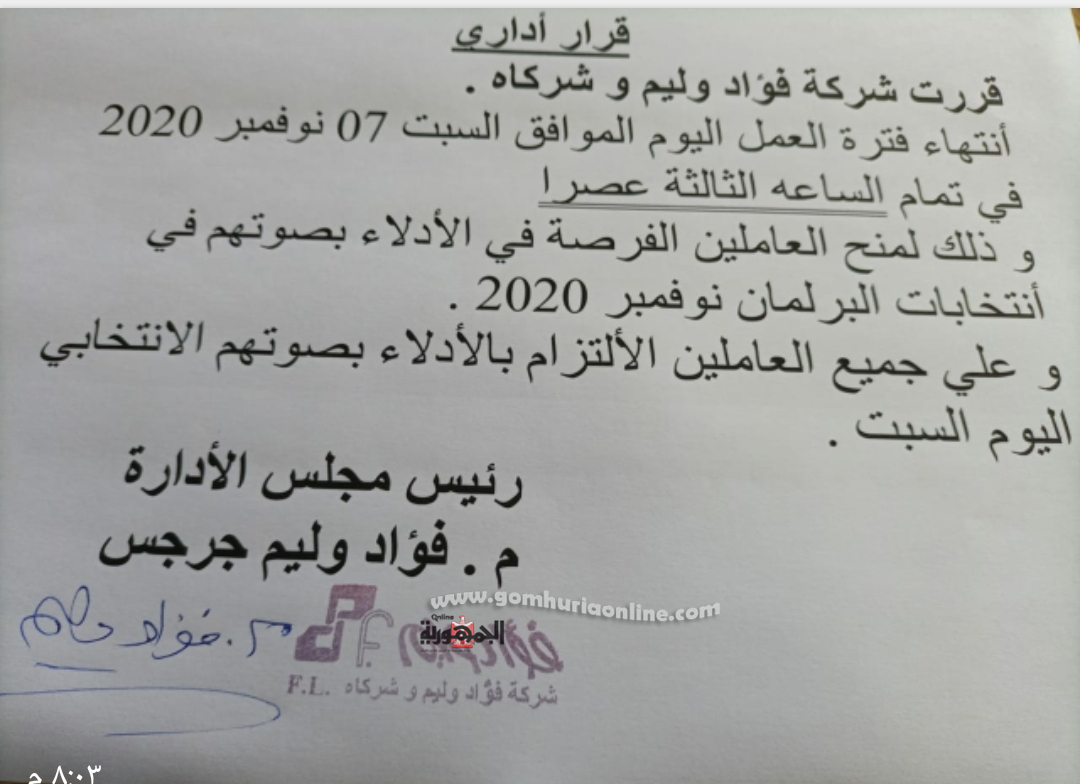 قرار أداري
قررت شركة فؤاد وليم و شركاه .
أنتهاء فترة العمل اليوم الموافق السبت 07 نوفمبر 2020
في تمام الساعه الثالثة عصرا
و ذلك لمنح العاملين الفرصة في الأدلاء بصوتهم في
أنتخابات البرلمان نوفمبر 2020 .
و علي جميع العاملين الألتزام بالأدلاء بصوتهم الانتخابي
اليوم السبت .
رئيس مجلس الأدارة
م . فؤاد وليم جرجس
www.gomhuriaonline.com
Online
الجمهورية
م. فؤاد وليم
شركة فؤاد وليم و شركاه F.L.
٨:٠٣ م